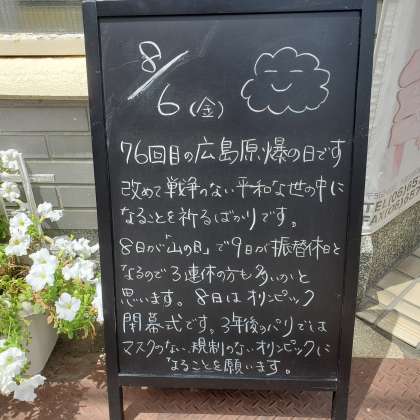 8/6(金)
76回目の広島原爆の日です
改めて戦争のない平和な世の中に
なることを祈るばかりです。
8日が「山の日」で9日が振替休日と
なるので3連休の方も多いかと
思います。8日はオリンピック
閉幕式です。3年後のパリでは
マスクのない、規制のないオリンピックに
なることを願います。